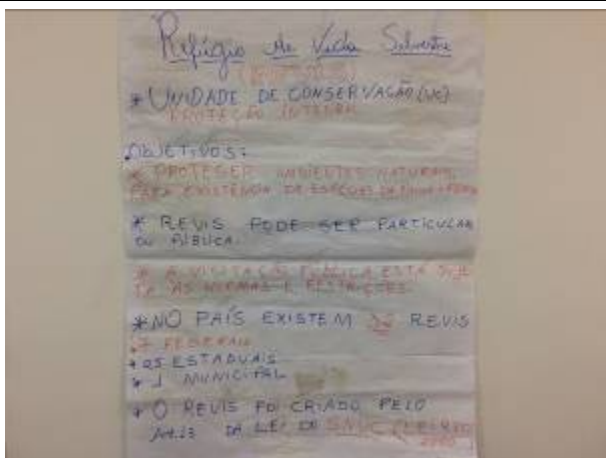 Refúgio de Vida Silvestre
* UNIDADE DE CONSERVAÇÃO (UC)
PROTEÇÃO INTEGRAL
OBJETIVOS:
* PROTEGER AMBIENTES NATURAIS
PARA EXISTÊNCIA DE ESPÉCIES DA
* REVIS PODE SER PARTICULAR
OU PÚBLICA.
* A VISITAÇÃO PÚBLICA ESTÁ SUJEI
TA ÀS NORMAS E RESTRIÇÕES
* NO PAÍS EXISTEM REVIS
7 FEDERAIS
* 25 ESTADUAIS
* 1 MUNICIPAL
* O REVIS FOI CRIADO PELO
Art.13 DA LEI DO SNUC (LEI
2000